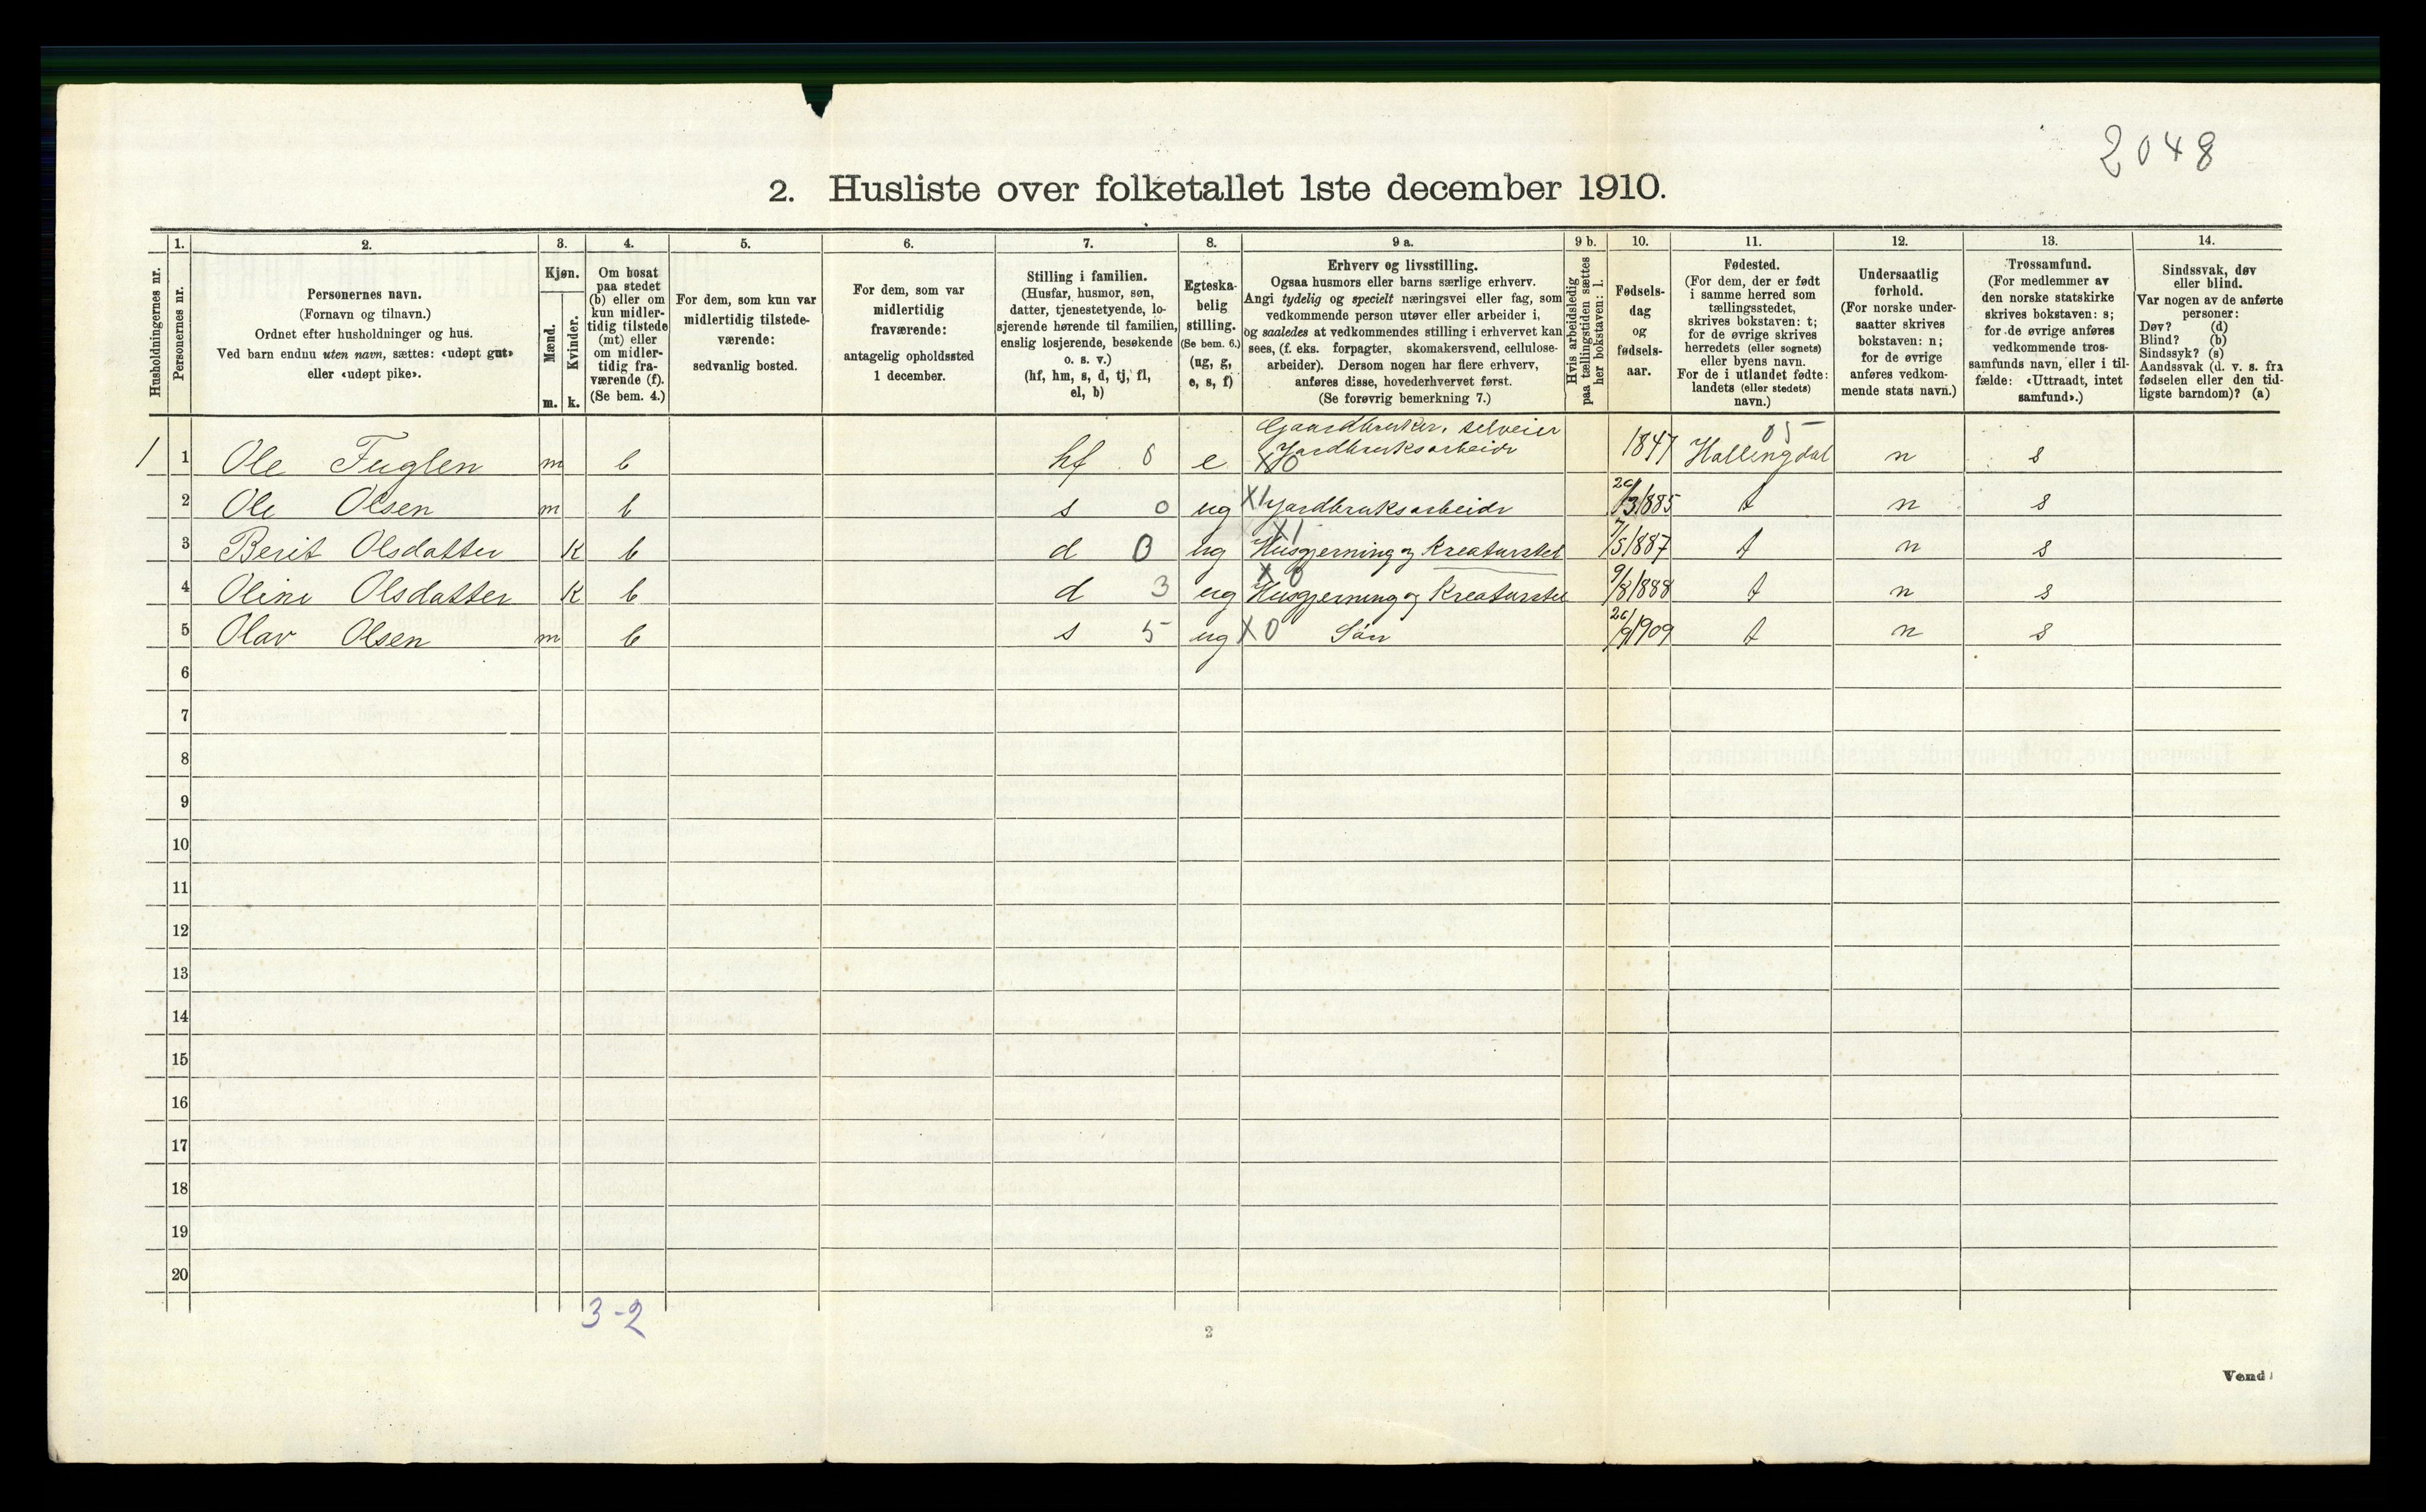 2048
2. Husliste over folketallet 1ste december 1910.
Husholdningernes nr.
1.
Personernes nr.
2.
Personernes navn.
(Fornavn og tilnavn.)
Ordnet efter husholdninger og hus.
Ved barn endnu uten navn, sættes: «udøpt gut»
eller «udøpt pike».
3.
Kjøn.
Mænd.
Kvinder.
m. k.
4.
Om bosat
paa stedet
(b) eller om
kun midler-
tidig tilstede
(mt) eller
om midler-
tidig fra-
værende (f).
(Se bem. 4.)
5.
For dem, som kun var
midlertidig tilstede-
værende:
sedvanlig bosted.
6.
For dem, som var
midlertidig
fraværende:
antagelig opholdssted
1 december.
7.
Stilling i familien.
(Husfar, husmor, søn,
datter, tjenestetyende, lo-
sjerende hørende til familien,
enslig losjerende, besøkende
o. s. v.)
(hf, hm, s, d, tj, fl,
el, b)
8.
Egteska-
belig
stilling.
(Se bem. 6.)
(ug, g,
e, s, f)
9 a.
Erhverv og livsstilling.
Ogsaa husmors eller barns særlige erhverv.
Angi tydelig og specielt næringsvei eller fag, som
vedkommende person utøver eller arbeider i,
og saaledes at vedkommendes stilling i erhvervet kan
sees, (f. eks. forpagter, skomakersvend, cellulose-
arbeider). Dersom nogen har flere erhverv,
anføres disse, hovederhvervet først.
(Se forøvrig bemerkning 7.)
9 b.
Hvis arbeidsledig
paa tællingstiden sættes
her bokstaven: l.
10.
Fødsels-
dag
og
fødsels-
aar.
11.
Fødested.
(For dem, der er født
i samme herred som
tællingsstedet,
skrives bokstaven: t;
for de øvrige skrives
herredets (eller sognets)
eller byens navn.
For de i utlandet fødte:
landets (eller stedets)
navn.)
12.
Undersaatlig
forhold.
(For norske under-
saatter skrives
bokstaven: n;
for de øvrige
anføres vedkom-
mende stats navn.)
13.
Trossamfund.
(For medlemmer av
den norske statskirke
skrives bokstaven: s;
for de øvrige anføres
vedkommende tros-
samfunds navn, eller i til-
fælde: «Uttraadt, intet
samfund».)
14.
Sindssvak, døv
eller blind.
Var nogen av de anførte
personer:
Døv? (d)
Blind? (b)
Sindssyk? (s)
Aandssvak (d. v. s. fra
fødselen eller den tid-
ligste barndom)? (a)
Gaardbruker, selveier 05
1 1 Ole Fuglen m b hf 0 e X0 Jordbruksarbeide 1847 Hallingdal n s
2 Ole Olsen m b s 0 ug X1 Jordbruksarbeide 20/3 1885 t n s
3 Berit Olsdatter K b d 0 ug X1 Husgjerning og Kreaturstel 7/5 1887 t n s
4 Oline Olsdatter K b d 3 ug X0 Husgjerning og Kreaturstel 9/8 1888 t n s
5 Olav Olsen m b s 5 ug X0 Søn 20/9 1909 t n s
6
7
8
9
10
11
12
13
14
15
16
17
18
19
20
3-2
2
Vend!